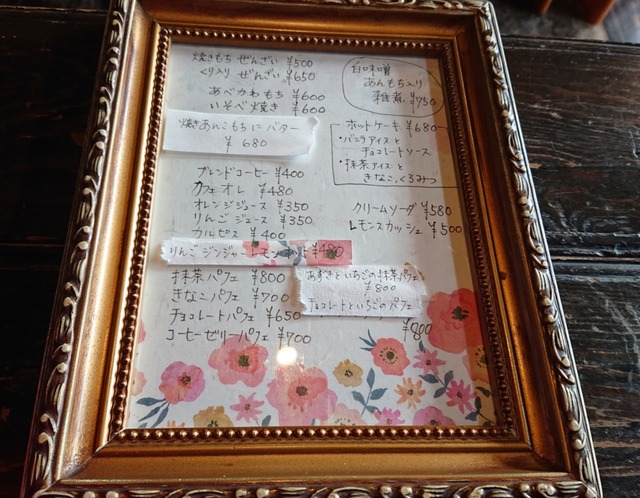 焼きもち ぜんざい ¥500
くり入り ぜんざい ¥650
あべかわもち ¥600
いそべ焼き ¥600
焼きあんこもちにバター
¥680
ブレンドコーヒー ¥400
カフェオレ ¥480
オレンジジュース ¥350
りんごジュース ¥350
カルピス ¥400
りんごジンジャーレモン ¥480
抹茶パフェ ¥800
きなこパフェ ¥700
チョコレートパフェ ¥650
コーヒーゼリーパフェ ¥700
白味噌
あんもち入り
雑煮 ¥750
ホットケーキ ¥680
・バニラアイスと
チョコレートソース
・抹茶アイスと
きなこ、くろみつ
クリームソーダ ¥580
レモンスカッシュ ¥500
あずきといちごの抹茶パフェ
¥800
チョコレートといちごのパフェ
¥800